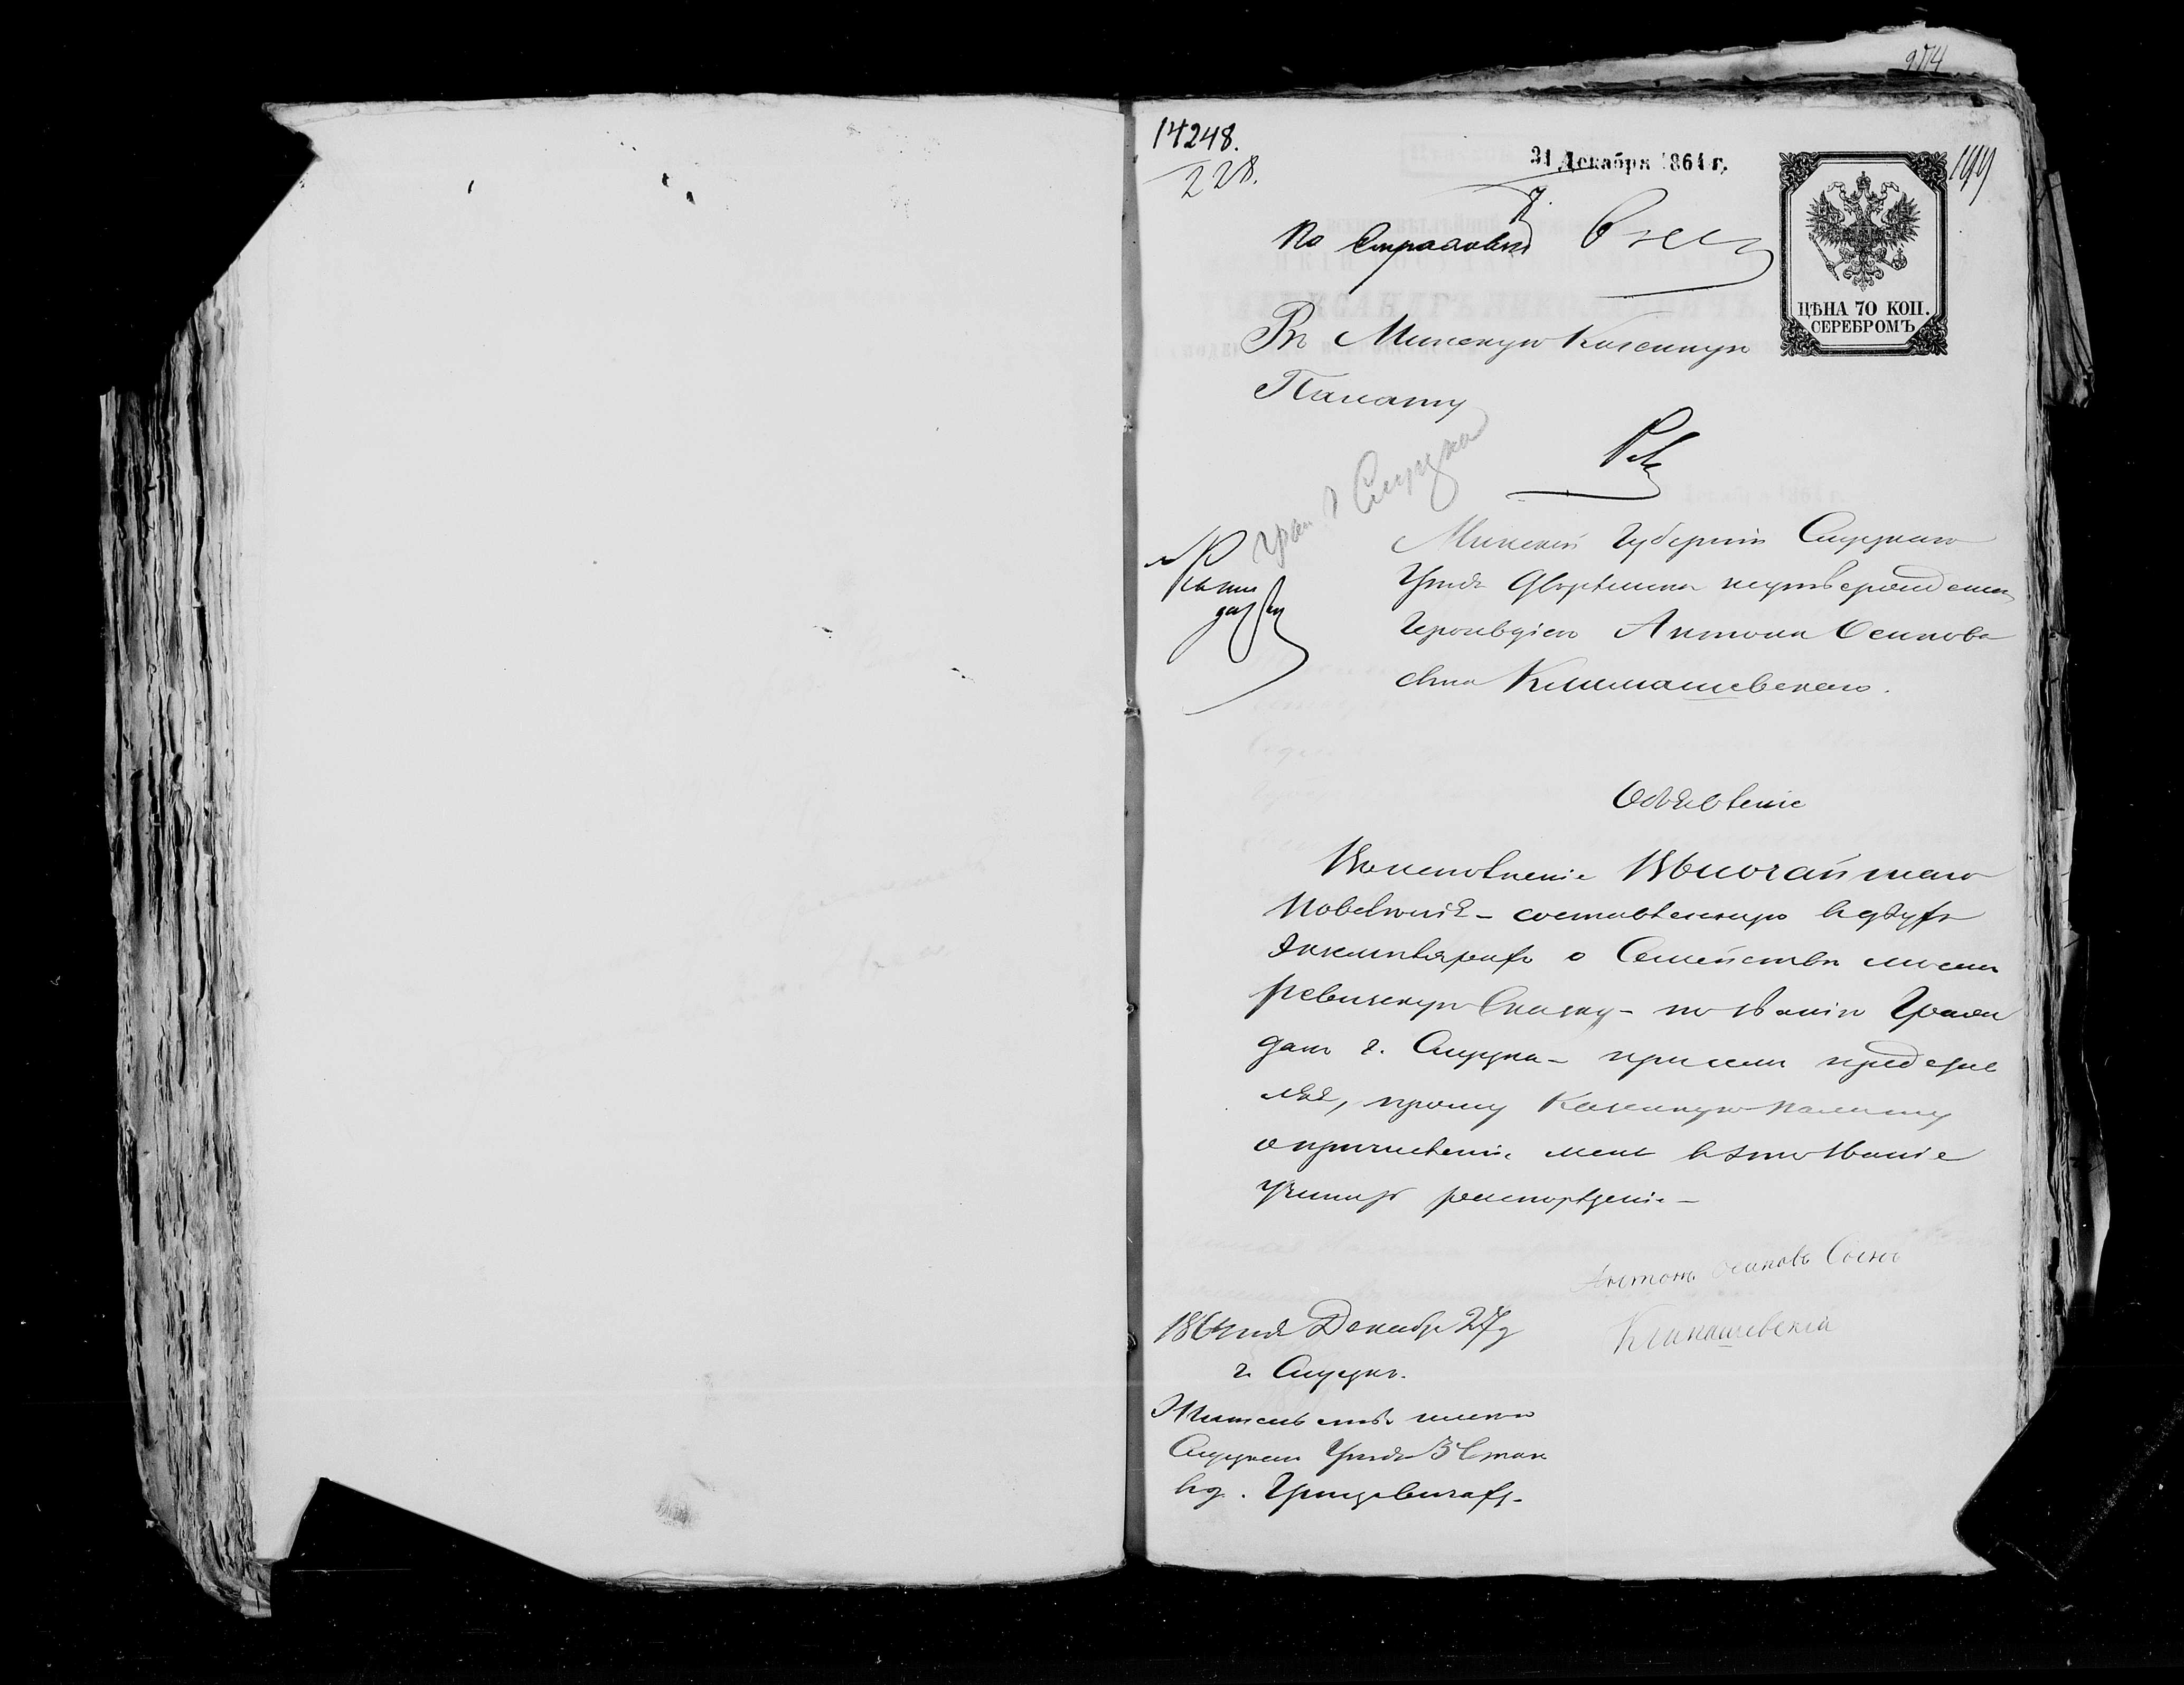 14248.
228.
31 Декабря 1864 г.
199
По Страховкѣ
ЦѢНА 70 КОП.
СЕРЕБРОМЪ
Въ Минскую Казенную
Палату
граж. г. Слуцка
Минской Губерніи Слуцкаго
Уѣзда Дворянина неутвержденнаго
Герольдіею Антона Осипова
сына Климашевскаго.
Объявленіе
Во исполненіе Высочайшаго
повеленія – составленную въ двухъ
экземплярахъ о Семействѣ моемъ
ревизскую Сказку – по званію Граж
данъ г. Слуцка – при семъ представ
ляя, прошу Казенную палату
о причисленіи меня въ это званіе
учинить распоряженіе –
Антонъ Осиповъ Сынъ
Климашевскій
1864 года Декабря 27 д
г. Слуцкъ.
Жительство имѣю
Слуцкаго Уѣзда 3 Стана
въ д.